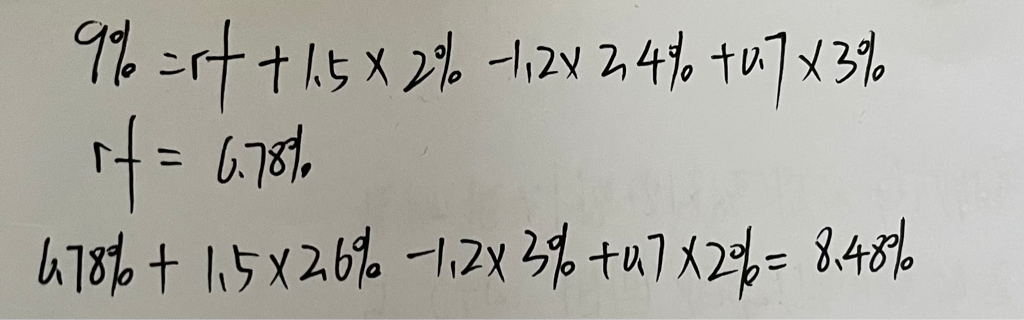 9% = rf + 1.5 × 2% - 1.2 × 2.4% + 0.7 × 3%
rf = 6.78%
6.78% + 1.5 × 2.6% - 1.2 × 3% + 0.7 × 2% = 8.48%